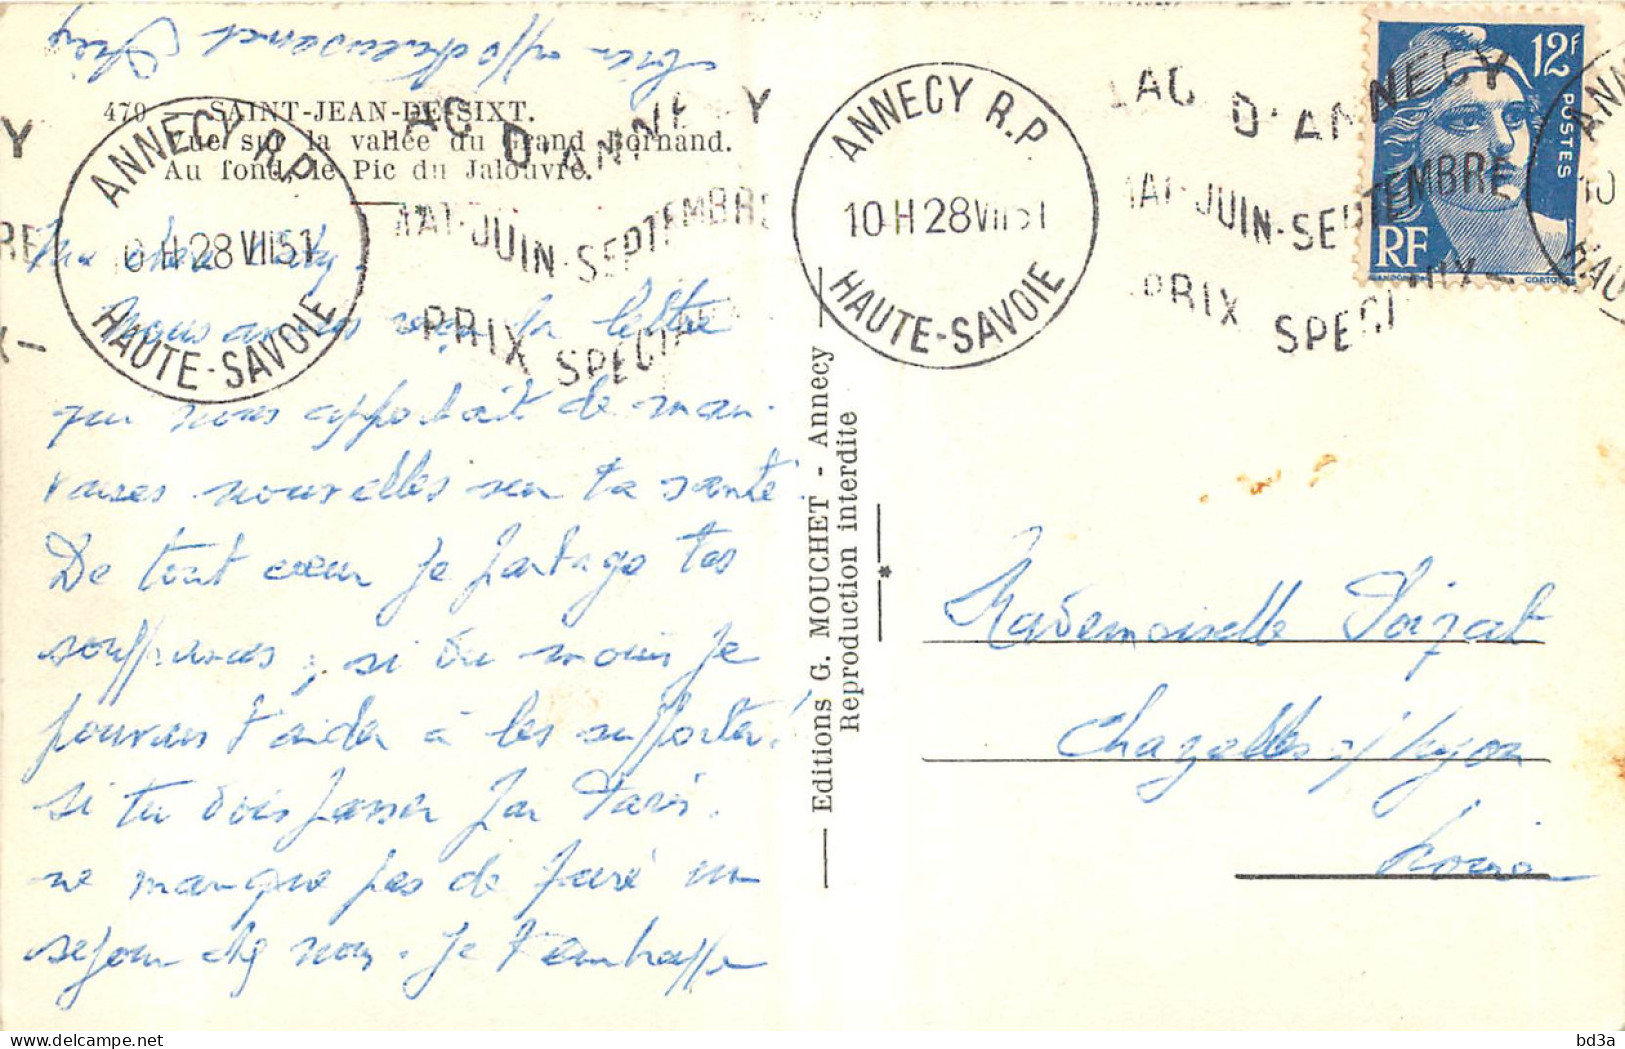 bien affectueusement
479 - SAINT-JEAN-DE-SIXT.
Vue sur la vallée du Grand Bornand.
Au fond, le Pic du Jalouvre.
ANNECY R.P.
10 H 28 VII 51
HAUTE-SAVOIE
LAC D'ANNECY
MAI-JUIN-SEPTEMBRE
PRIX SPECIAUX
Ma chère
Nous avons reçu ta lettre
qui nous apportait de mau-
vaises nouvelles sur ta santé.
De tout cœur je partage tes
souffrances, si du moins je
pouvais t'aider à les supporter!
si tu dois passer par Paris.
ne manque pas de faire un
séjour chez nous. Je t'embrasse
Editions G. MOUCHET - Annecy
Reproduction interdite
*
ANNECY R.P.
10 H 28 VII 51
HAUTE-SAVOIE
LAC D'ANNECY
MAI-JUIN-SEPTEMBRE
PRIX SPECIAUX-
12F
POSTES
RF
GANDON
CORTOT
ANN
10
HAU
Mademoiselle Poizat
Chazelles s/ Lyon
Loire
bd3a